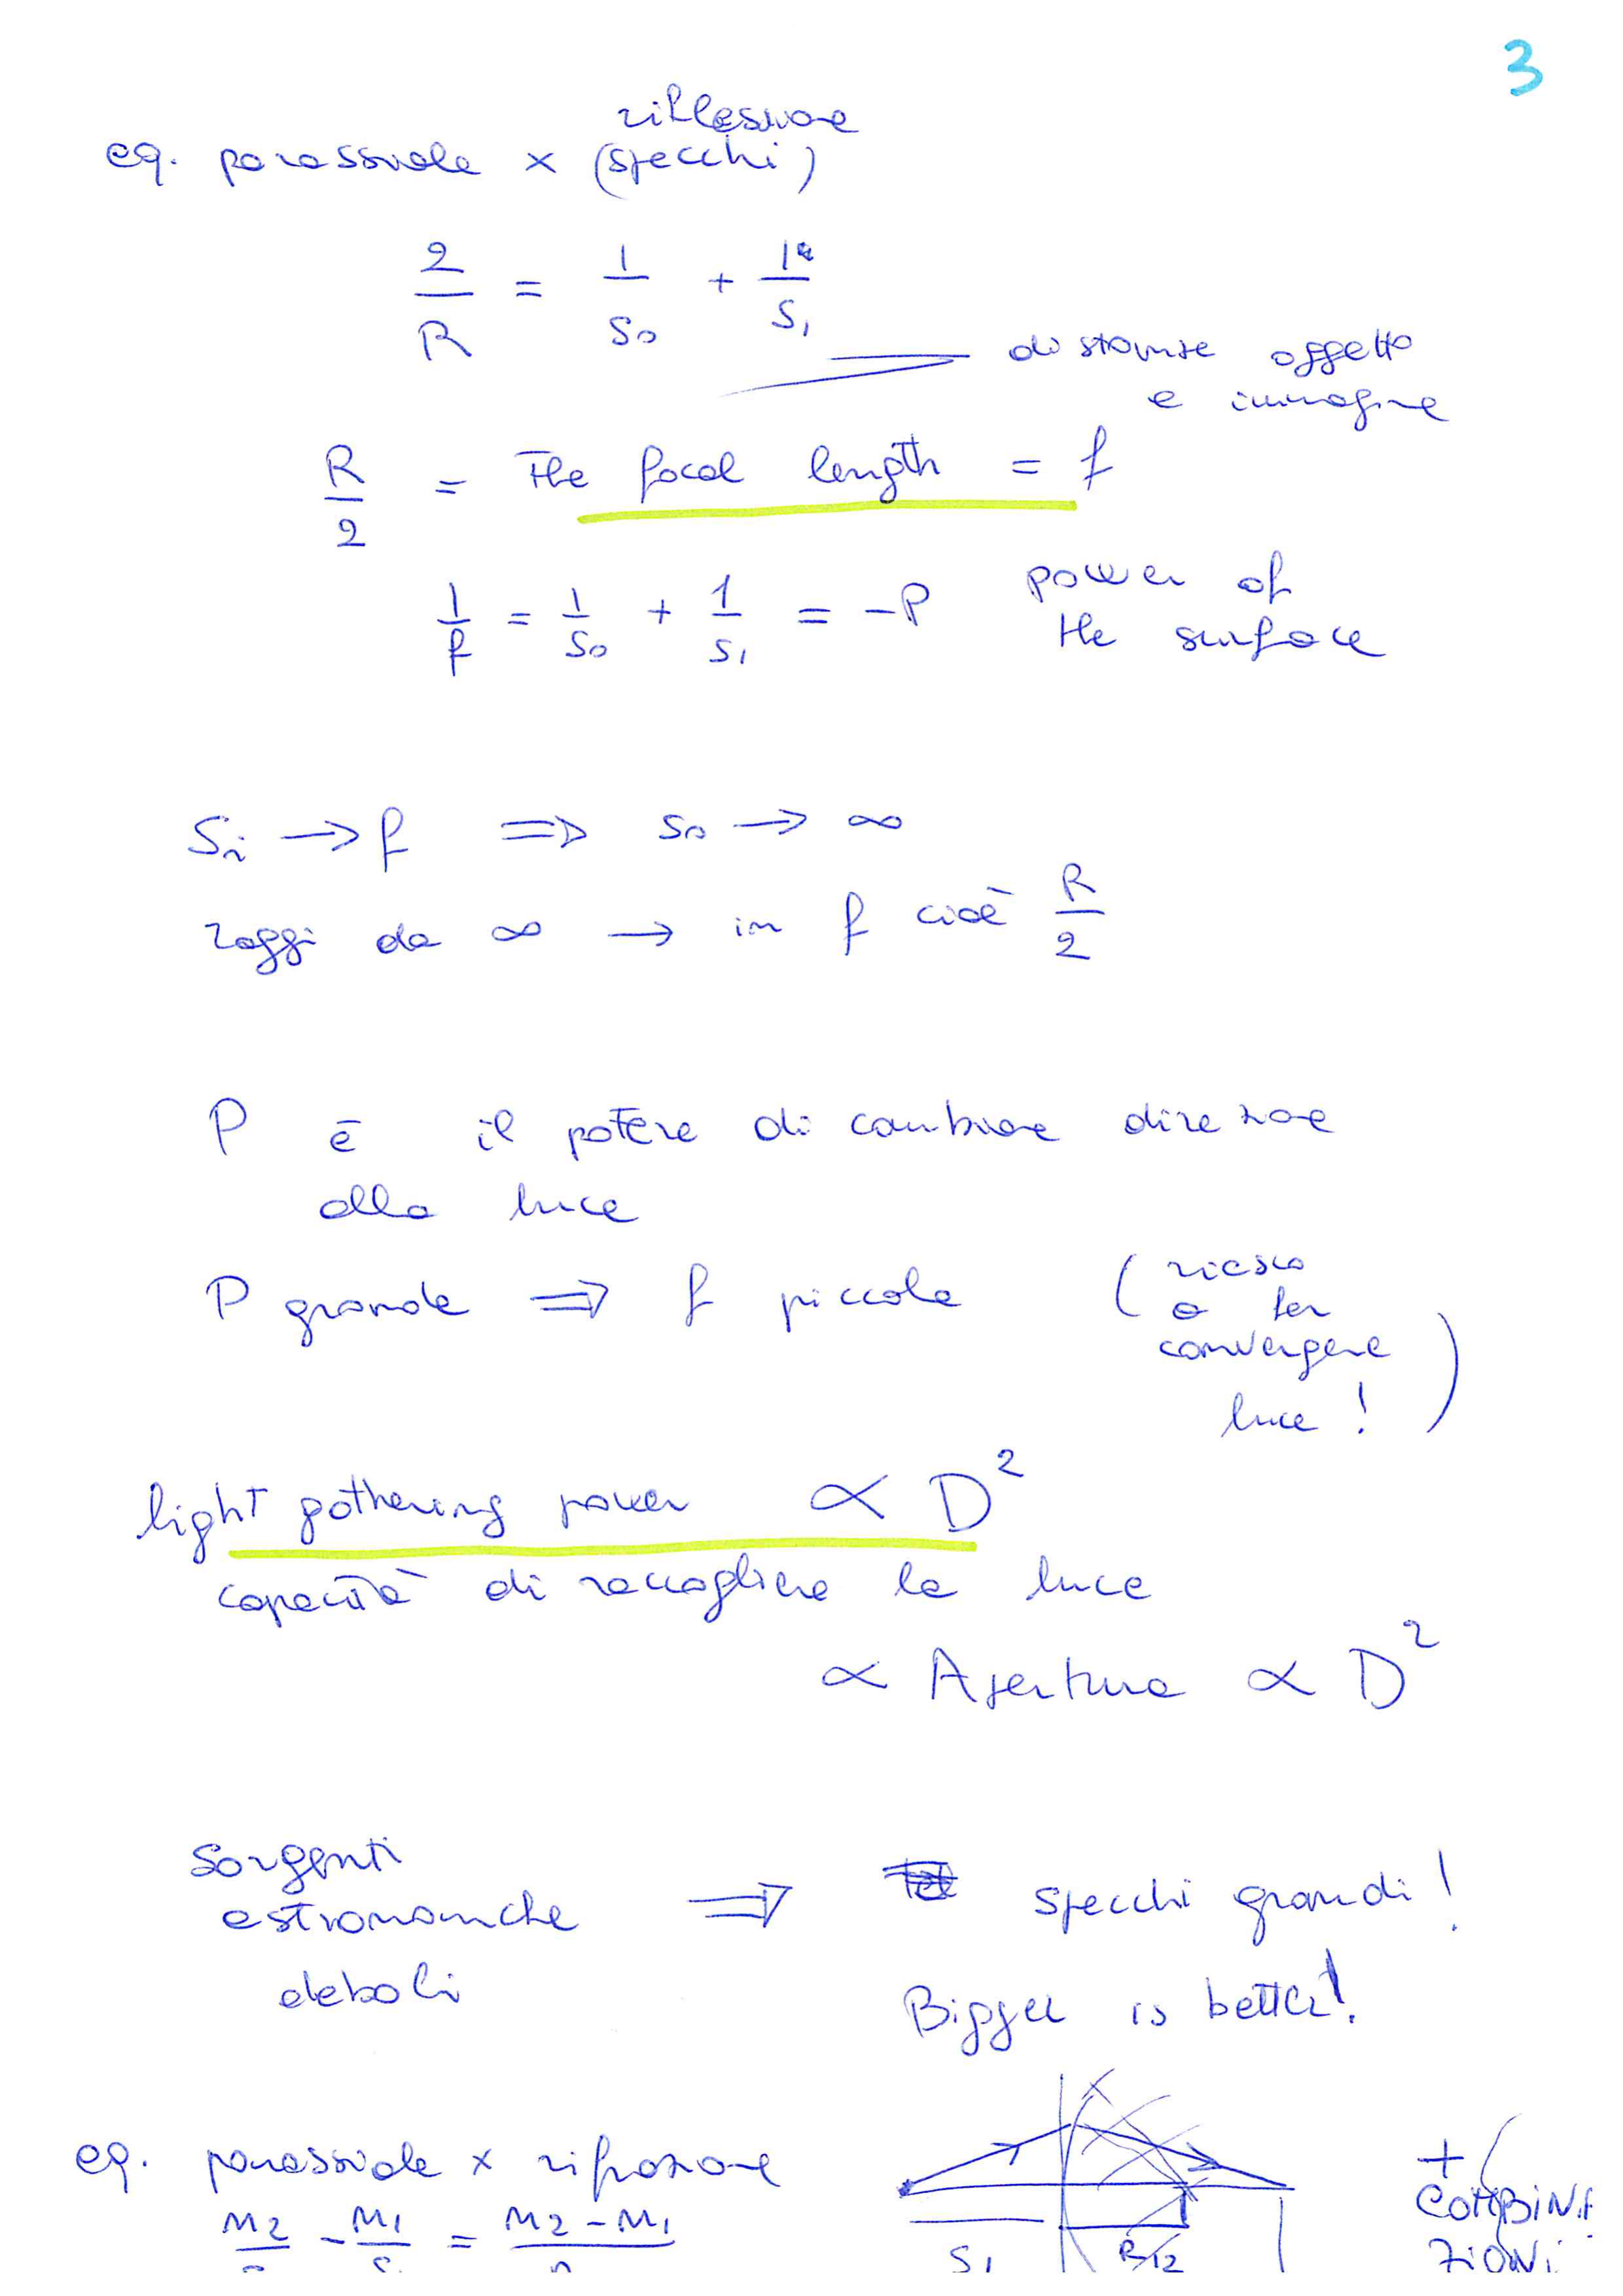 3
riflessione
eq. parassiale x (specchi)
2/R = 1/s0 + 1/s1
distanze oggetto
e immagine
R/2 = The focal length = f
1/f = 1/s0 + 1/s1 = -P power of
the surface
si → f ⇒ s0 → ∞
raggi da ∞ → in f cioè R/2
P è il potere di cambiare direzione
alla luce
P grande ⇒ f piccola (riesco
a far
convergere
luce!)
light gathering power ∝ D²
capacità di raccogliere la luce
∝ Apertura ∝ D²
Sorgenti
astronomiche
deboli ⇒ specchi grandi!
Bigger is better!
eq. parassiale x rifrazione
n2/ - n1/s = n2-n1/
s1 R/2
+
COMBINA
ZIONI